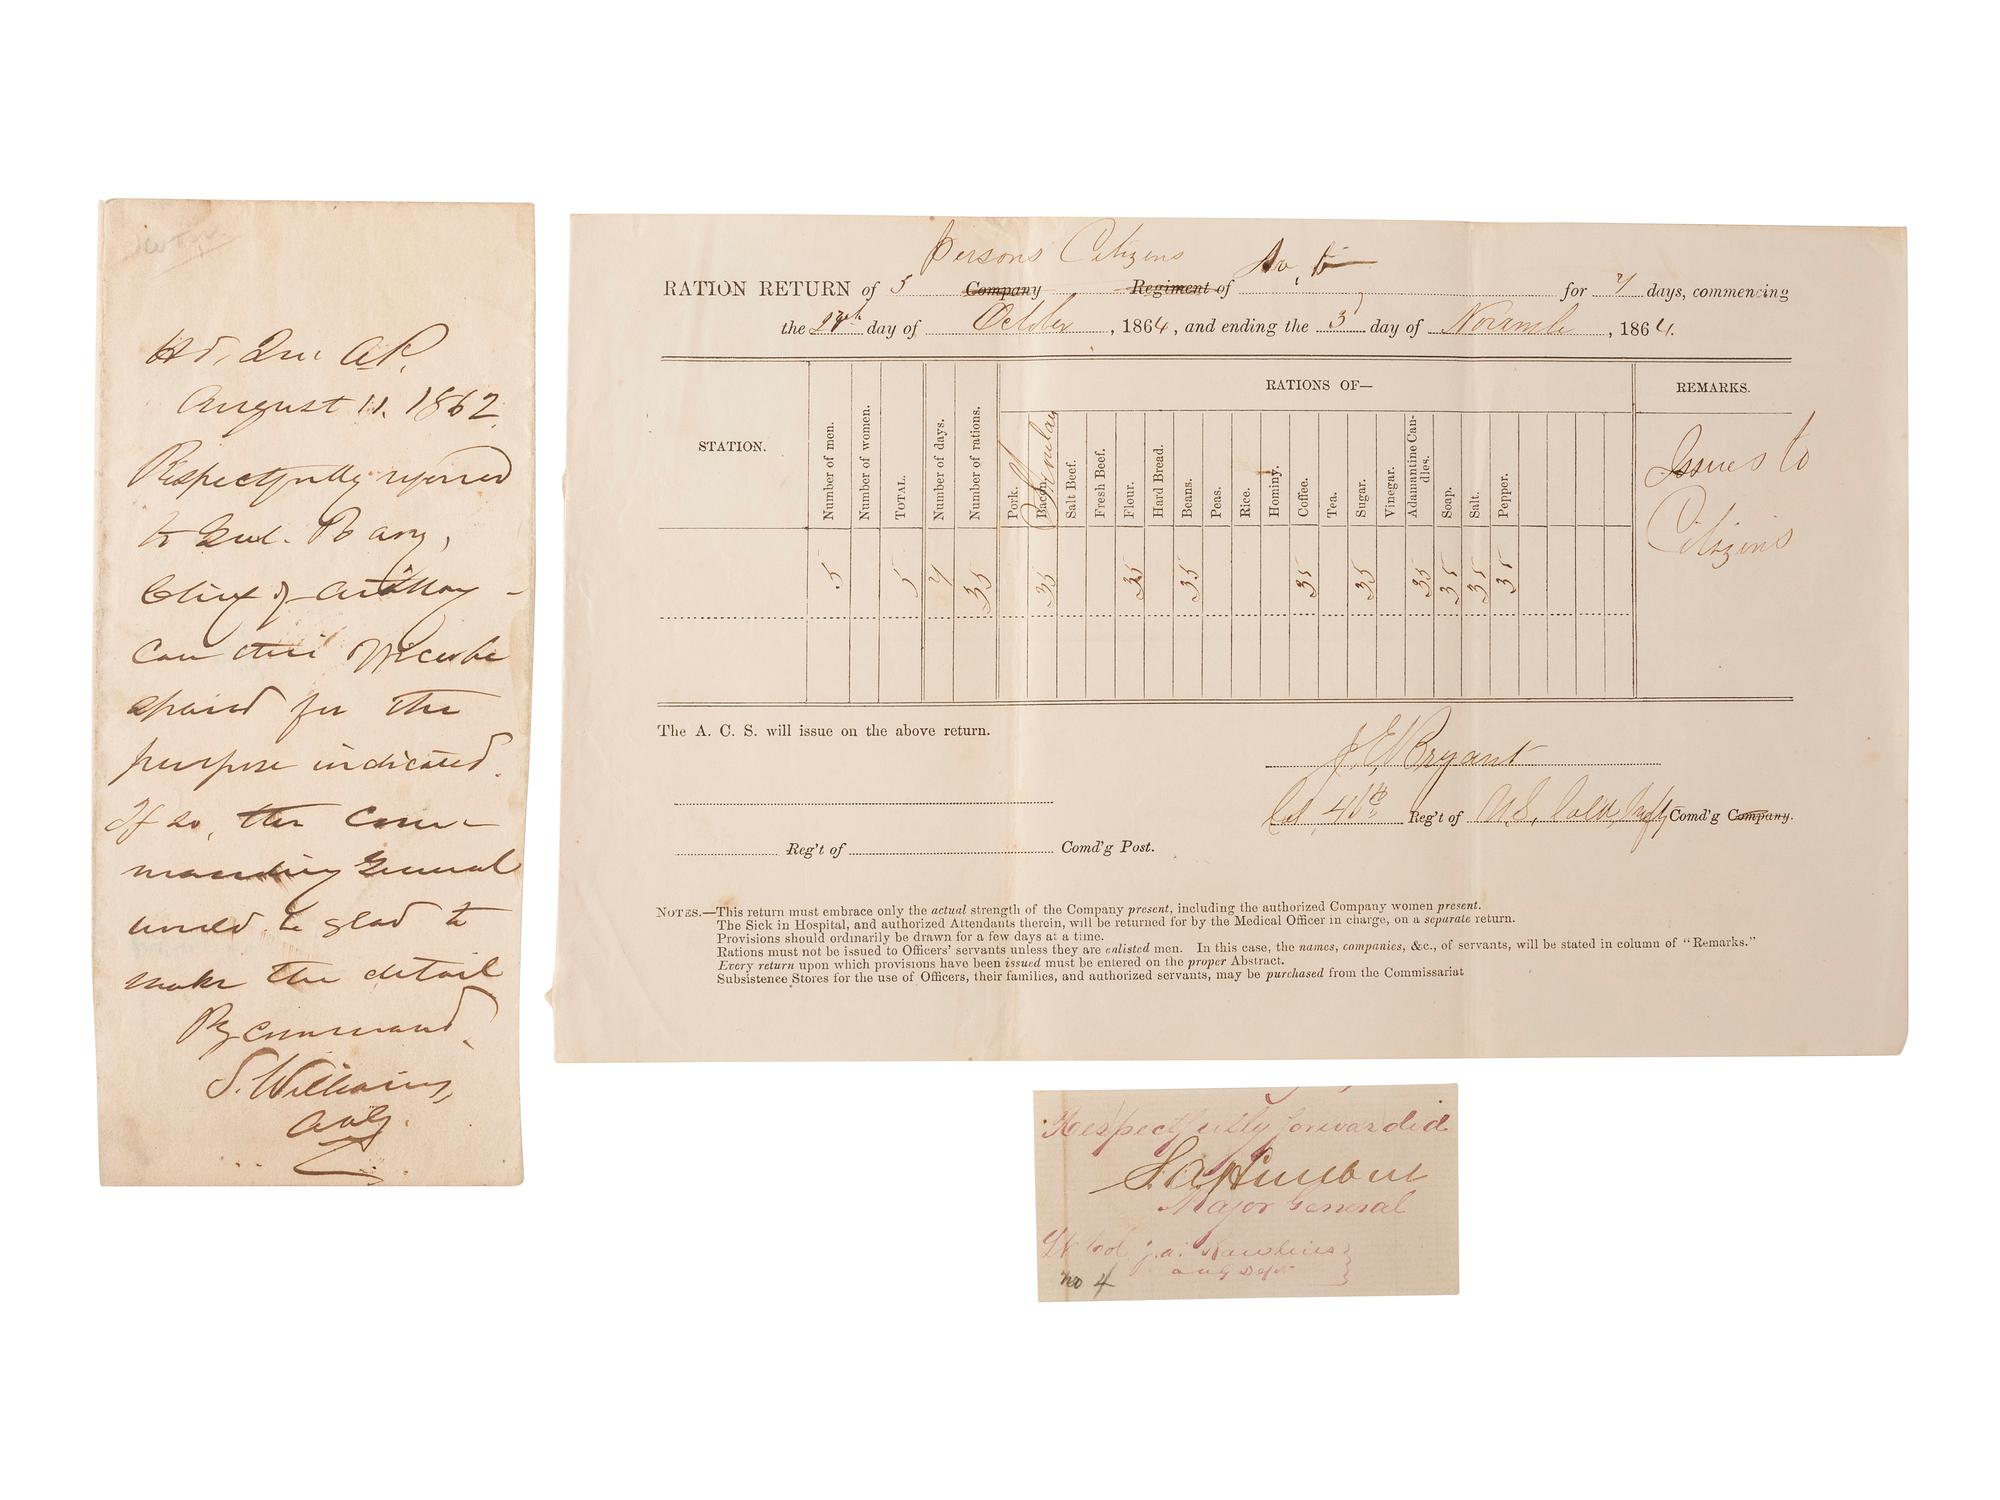 Hd, Qrs A.P.
August 11. 1862.
Respectfully referred
to Genl. Barry,
Chief of Artillery -
Can this officer be
spared for the
purpose indicated.
If so, the Com-
manding General
would be glad to
make the detail
By command,
S. Williams,
AAG.
Persons Citizens
RATION RETURN of 5 Company Regiment of for 7 days, commencing
the day of October, 1864, and ending the 3 day of November, 1864.
STATION.
Number of men.
Number of women.
TOTAL.
Number of days.
Number of rations.
RATIONS OF—
Pork.
Bacon.
Salt Beef.
Fresh Beef.
Flour.
Hard Bread.
Beans.
Peas.
Rice.
Hominy.
Coffee.
Tea.
Sugar.
Vinegar.
Adamantine Can-
dles.
Soap.
Salt.
Pepper.
REMARKS.
5 5 7 35 35 35 35 35 35 35 35 35 35
Issues to
Citizens
The A. C. S. will issue on the above return.
J. E. Bryant
Col, 46th Reg't of U.S. Cold, Infty Comd'g Company.
Reg't of Comd'g Post.
NOTES.—This return must embrace only the actual strength of the Company present, including the authorized Company women present.
The Sick in Hospital, and authorized Attendants therein, will be returned for by the Medical Officer in charge, on a separate return.
Provisions should ordinarily be drawn for a few days at a time.
Rations must not be issued to Officers' servants unless they are enlisted men. In this case, the names, companies, &c., of servants, will be stated in column of "Remarks."
Every return upon which provisions have been issued must be entered on the proper Abstract.
Subsistence Stores for the use of Officers, their families, and authorized servants, may be purchased from the Commissariat
Respectfully forwarded
S. A. Hurlbut
Major General
Lt Col J. A. Rawlins
AAG Dept
no 4